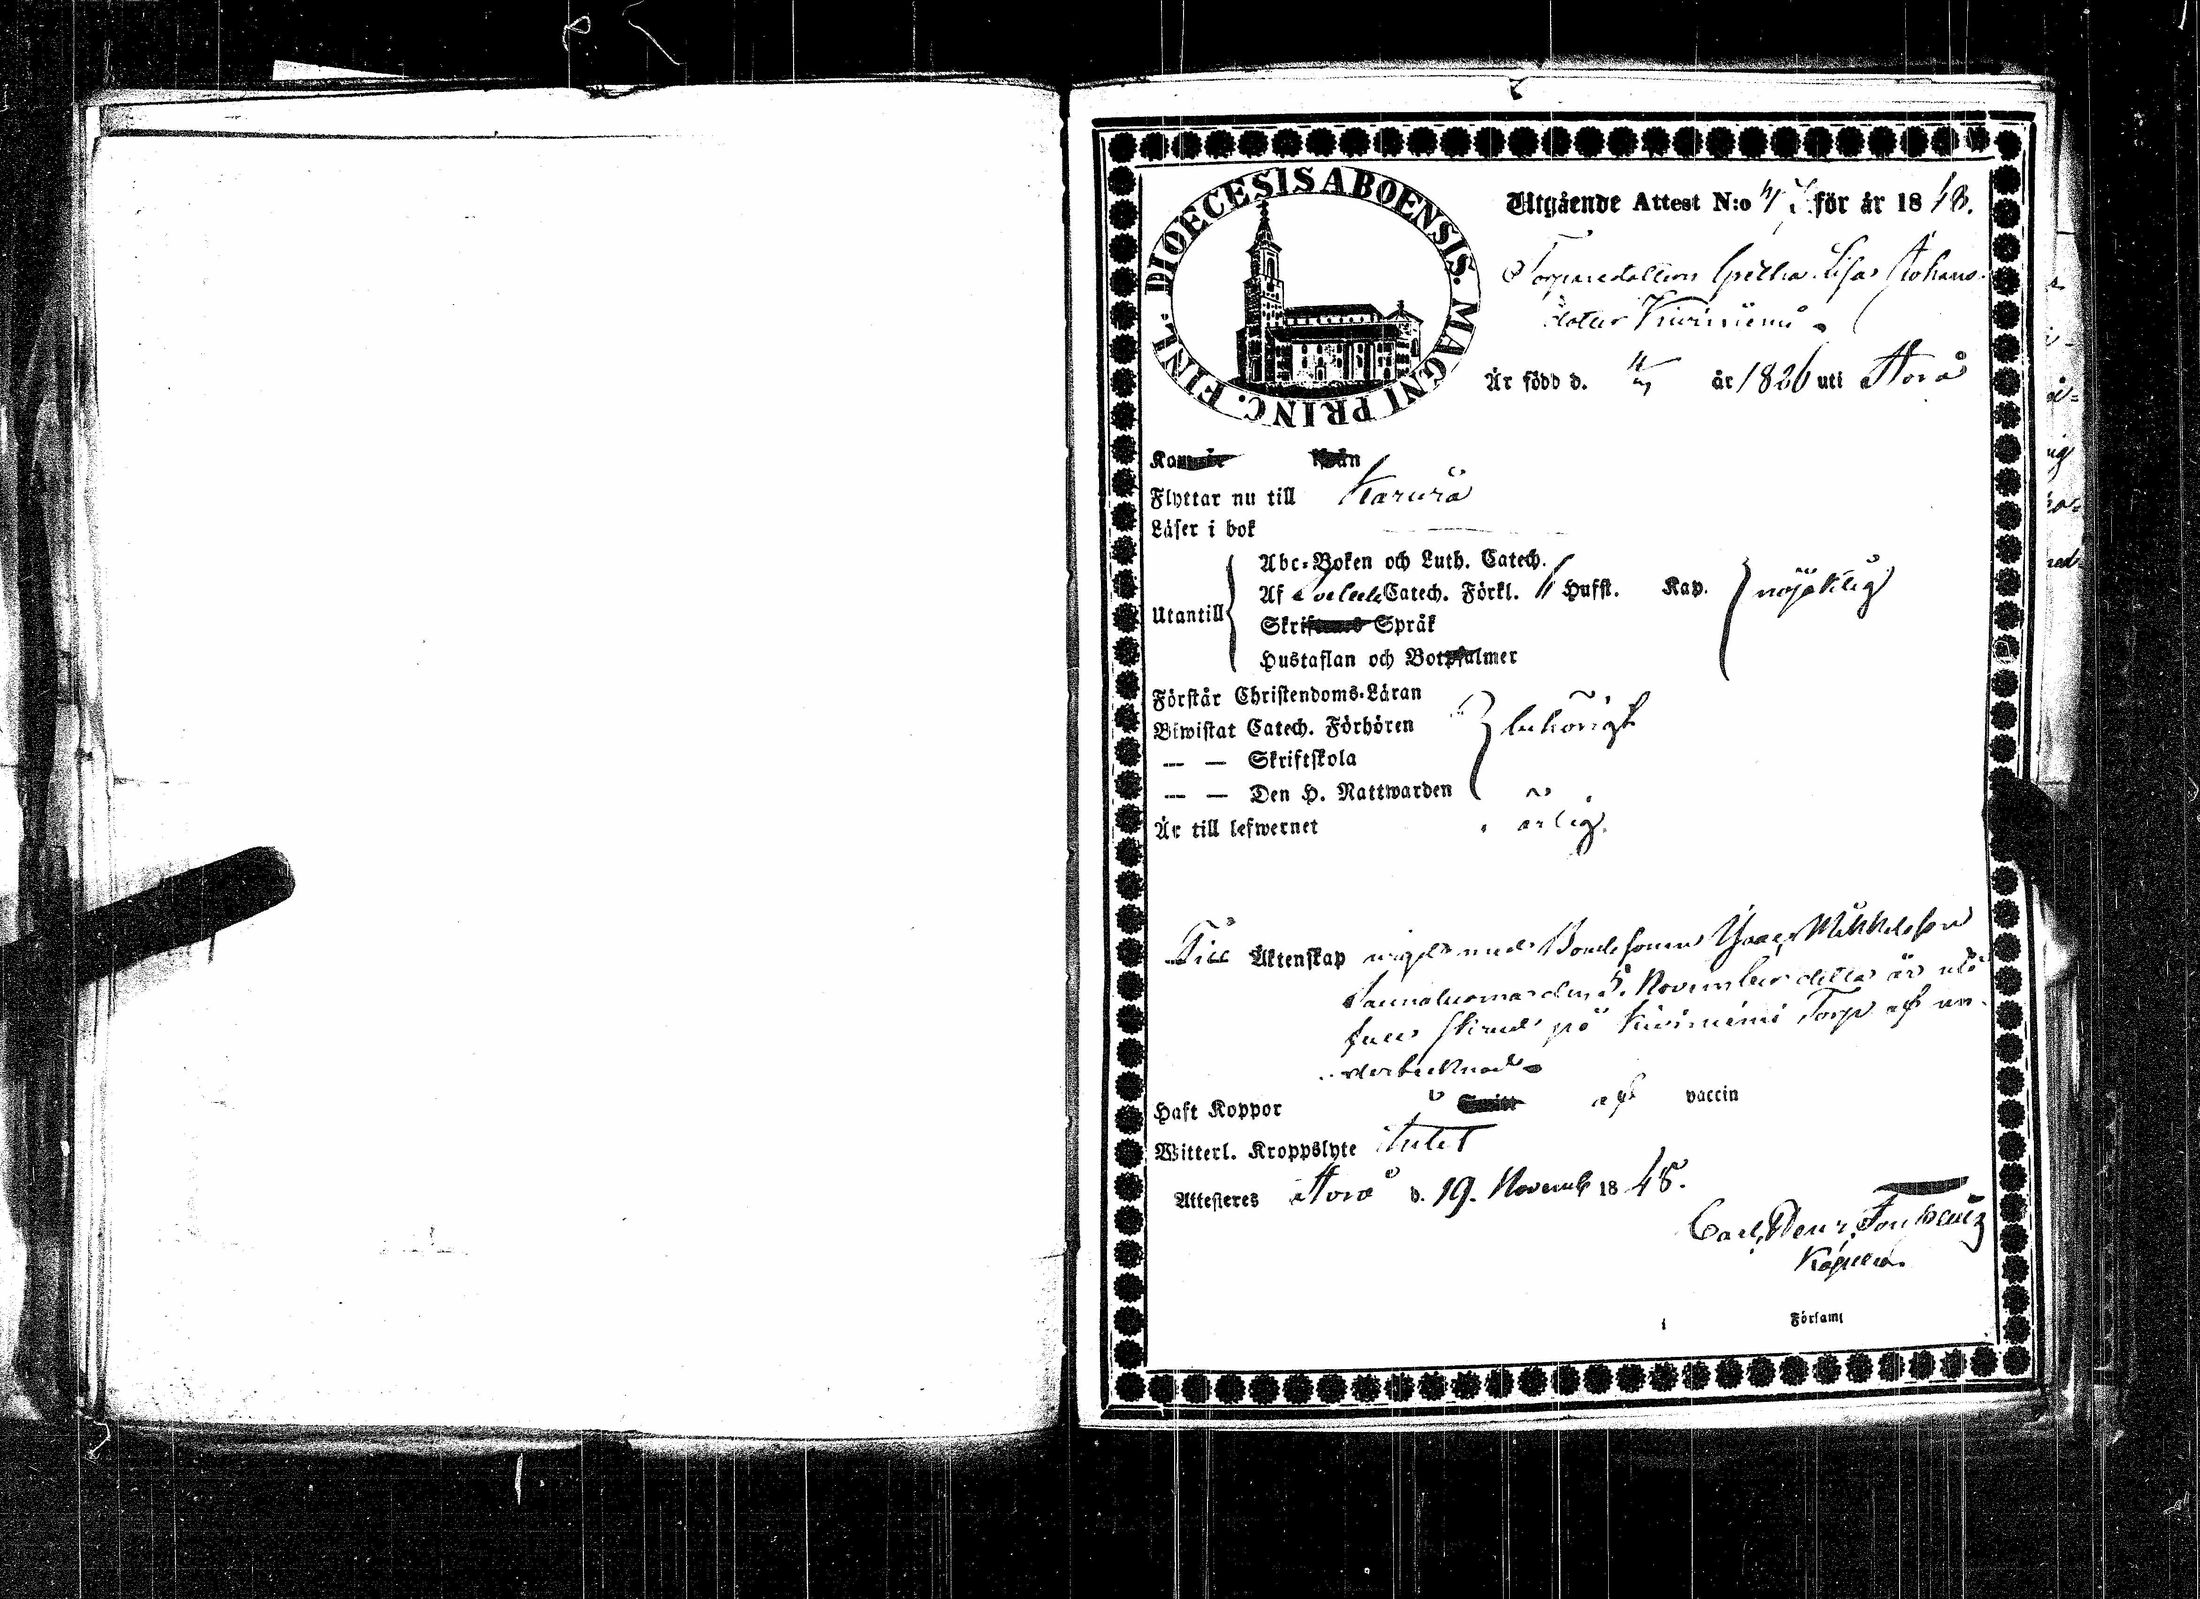 DIOECESIS ABOENSIS. MAGNI PRINC. FINL.
Utgående Attest N:o 47 för år 1848.
Torparedottren Greta Lisa Johans-
dotter Kiviniemi
Är född d. år 1826 uti Storå
Flyttar nu till Karvia
Läser i bok
Utantill
Abc-Boken och Luth. Catech.
Af Svebelii Catech. Förkl. Hufst. Kap. nöjaktig
Språk
Hustaflan och Botpsalmer
Förstår Christendoms-Läran
Biwistat Catech. Förhören behörigt
— — Skriftskola
— — Den H. Nattwarden
Är till lefwernet ärlig.
Till Äktenskap wigd med Bondesonen Isaac Mikkelsson
den 5. November detta år
på Kiviniemi Torp af un-
dertecknad
Haft Koppor af vaccin
Witterl. Kroppslyte intet
Attesteres Storå d. 19. Novemb 1848.
Carl Henr.
Kapellan.
i Församl